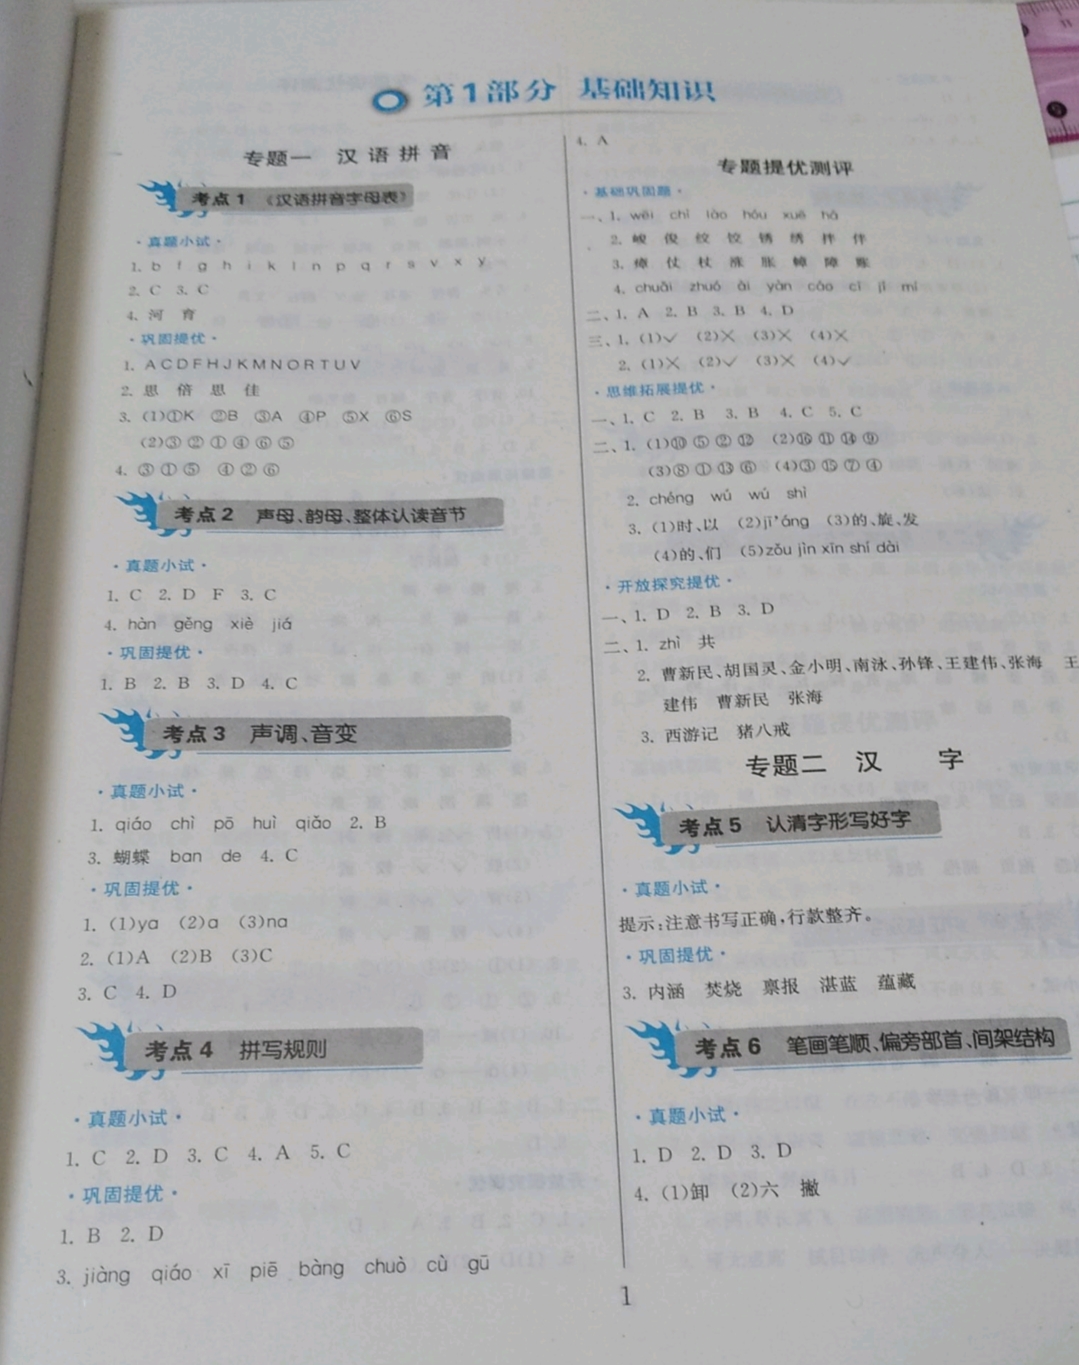 第1部分 基础知识
专题一 汉语拼音
考点1 《汉语拼音字母表》
·真题小试·
1. b f g h i k l n p q r s v x y
2. C 3. C
4. 河 育
·巩固提优·
1. A C D F H J K M N O R T U V
2. 思 倍 思 佳
3. (1)①K ②B ③A ④P ⑤X ⑥S
(2)③ ② ① ④ ⑥ ⑤
4. ③ ① ⑤ ④ ② ⑥
考点2 声母、韵母、整体认读音节
·真题小试·
1. C 2. D F 3. C
4. hàn gěng xiè jiá
·巩固提优·
1. B 2. B 3. D 4. C
考点3 声调、音变
·真题小试·
1. qiáo chì pō huì qiǎo 2. B
3. 蝴蝶 ban de 4. C
·巩固提优·
1. (1)ya (2)a (3)na
2. (1)A (2)B (3)C
3. C 4. D
考点4 拼写规则
·真题小试·
1. C 2. D 3. C 4. A 5. C
·巩固提优·
1. B 2. D
3. jiàng qiáo xī piē bàng chuò cù gū
4. A
专题提优测评
·基础巩固题·
一、1. wēi chì lào hóu xuē hā
2. 峻 俊 绞 铰 锈 绣 拌 伴
3. 瘴 仗 杖 涨 胀 幛 障 账
4. chuāi zhuó ài yàn cáo cī jǐ mí
二、1. A 2. B 3. B 4. D
三、1. (1)✓ (2)✕ (3)✕ (4)✕
2. (1)✕ (2)✓ (3)✕ (4)✓
·思维拓展提优·
一、1. C 2. B 3. B 4. C 5. C
二、1. (1)⑩ ⑤ ② ⑫ (2)⑯ ⑪ ⑭ ⑨
(3)⑧ ① ⑬ ⑥ (4)③ ⑮ ⑦ ④
2. chéng wú wú shì
3. (1)时、以 (2)jī'áng (3)的、旋、发
(4)的、们 (5)zǒu jìn xīn shí dài
·开放探究提优·
一、1. D 2. B 3. D
二、1. zhì 共
2. 曹新民、胡国灵、金小明、南泳、孙锋、王建伟、张海 王
建伟 曹新民 张海
3. 西游记 猪八戒
专题二 汉 字
考点5 认清字形写好字
·真题小试·
提示:注意书写正确,行款整齐。
·巩固提优·
3. 内涵 焚烧 禀报 湛蓝 蕴藏
考点6 笔画笔顺、偏旁部首、间架结构
·真题小试·
1. D 2. D 3. D
4. (1)卸 (2)六 撇
1